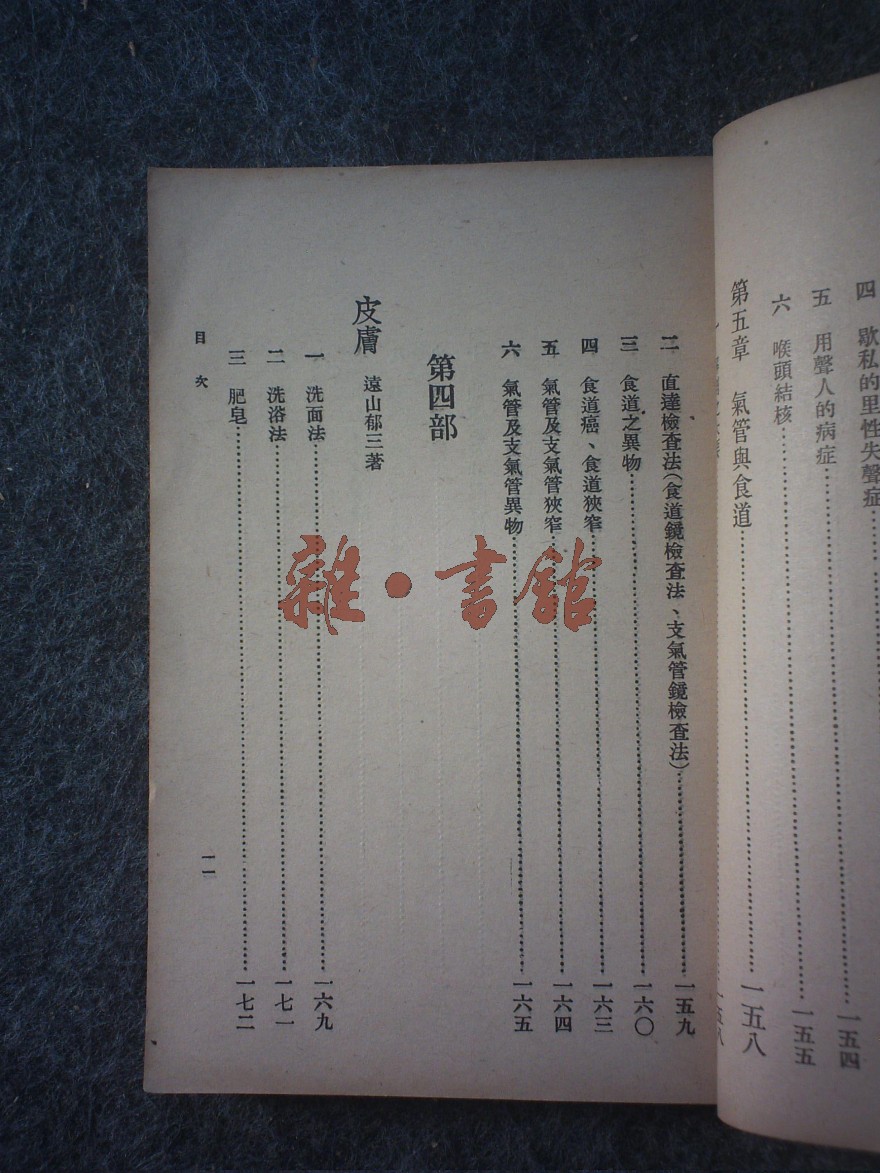 四 歇私的里性失聲症……一五四
五 用聲人的病症……一五五
六 喉頭結核……一五五
第五章 氣管與食道……一五八
一五八
二 直達檢查法(食道鏡檢查法、支氣管鏡檢查法)……一五九
三 食道之異物……一六〇
四 食道癌、食道狹窄……一六三
五 氣管及支氣管狹窄……一六四
六 氣管及支氣管異物……一六五
第四部
皮膚 遠山郁三著
一 洗面法……一六九
二 洗浴法……一七一
三 肥皂……一七二
目次
一一
雜·書館